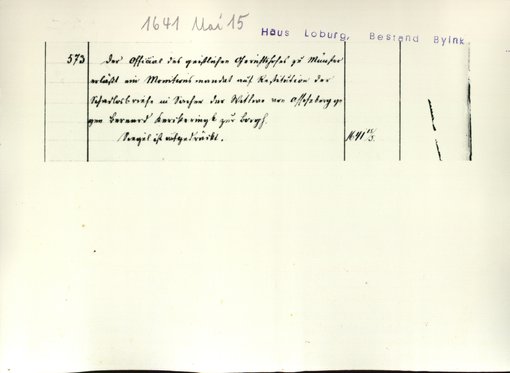 1641 Mai 15
Haus Loburg, Bestand Byink
573 Der Official des geistlichen Gerichtshofes zu Münster
erläßt ein Monitionsmandat auf Restitution der
Schadlosbriefe in Sachen der Wittwe von Asseberg ge
gen Bernard Kerckering zur Borgh.
Siegel ist aufgedrückt. 1641 15/5.